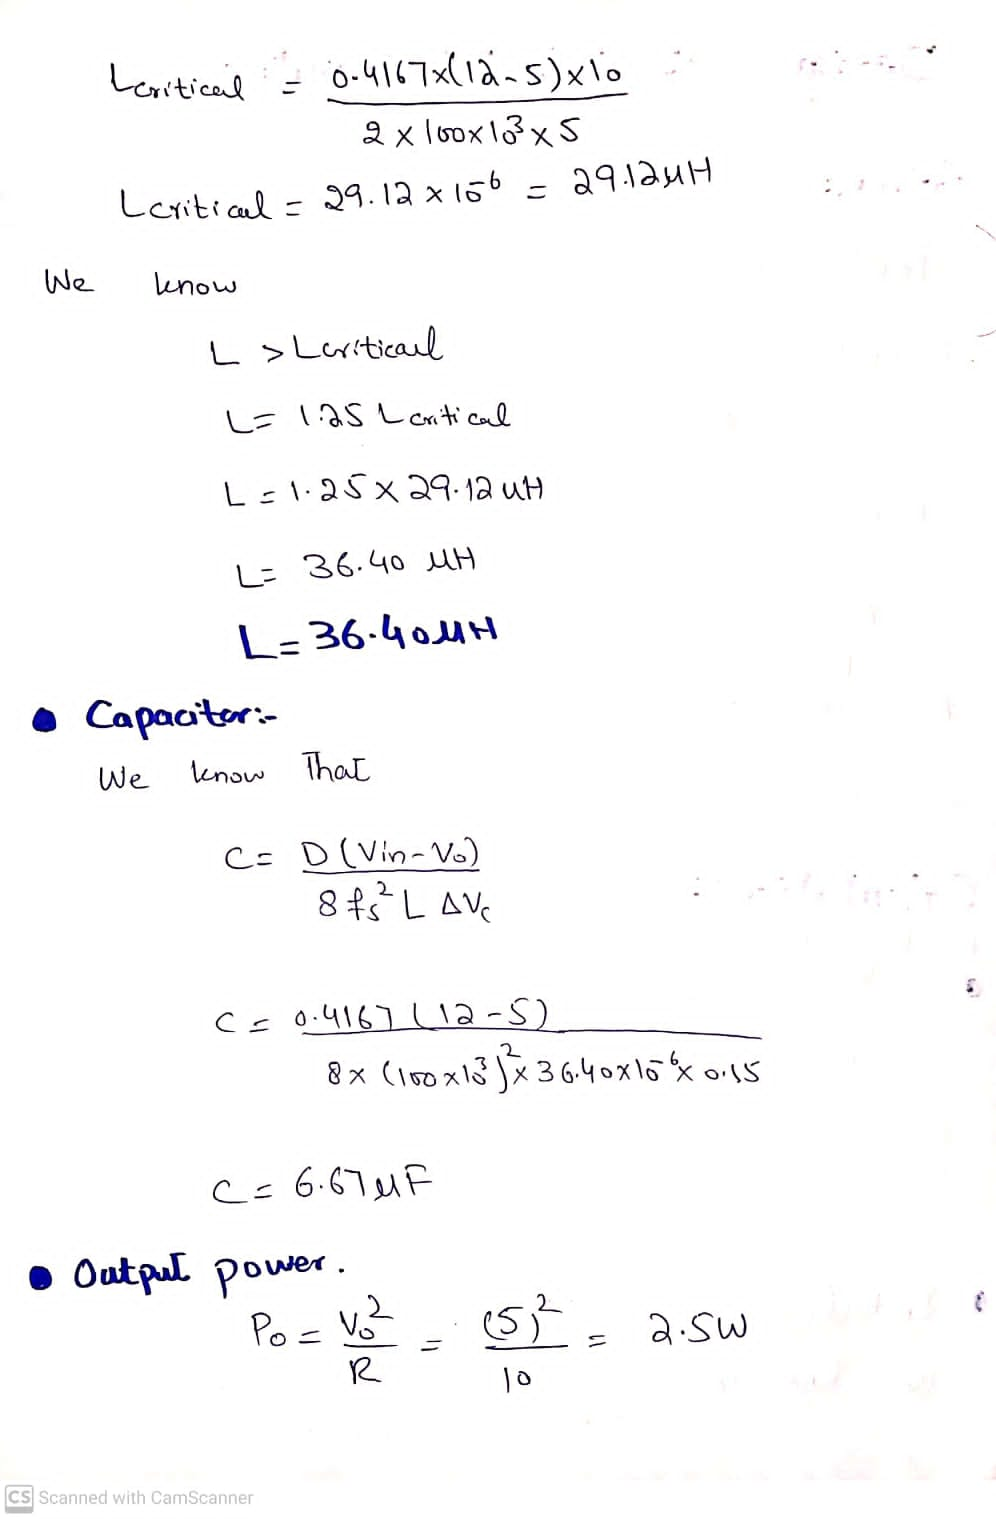 Lcritical = 0.4167x(12-5)x10
2 x 100x10³ x 5
Lcritical = 29.12 x 10⁻⁶ = 29.12μH
We know
L > Lcritical
L = 1.25 Lcritical
L = 1.25 x 29.12 uH
L = 36.40 μH
L = 36.40μH
• Capacitor:-
We know That
C = D (Vin - Vo)
8 fs² L ΔVc
C = 0.4167 (12-5)
8 x (100 x10³)² x 36.40x10⁻⁶ x 0.15
C = 6.67μF
• Output power.
Po = Vo² / R = (5)² / 10 = 2.5W
CS Scanned with CamScanner